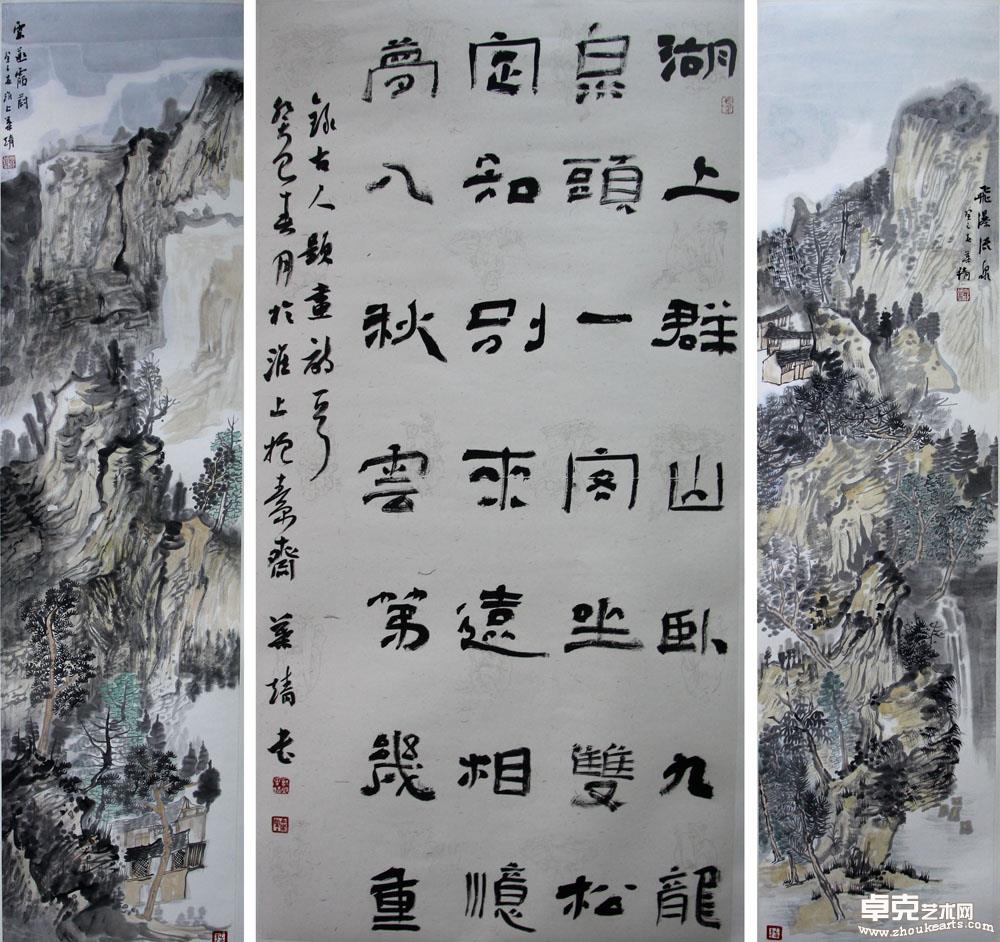 飛瀑流泉
癸巳春
湖上群山臥九龍
泉頭一閣坐雙松
定知別來遠相憶
夢入秋雲第幾重
錄古人題畫詩一首
癸巳春月於淮上抱素齋 靖书
雲蒸霞蔚
癸巳春淮上
卓克艺术网
www.zhoukearts.com